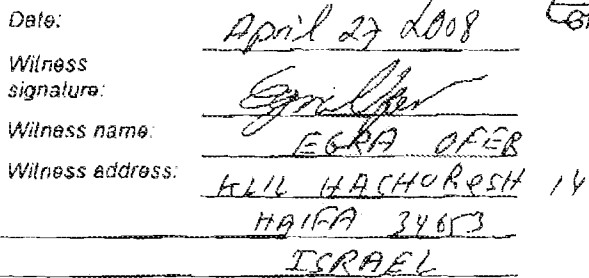 Date: April 27 2008
Witness
signature:
Witness name: EGRA OFER
Witness address: KLIL HACHORESH 14
HAIFA 34653
ISRAEL